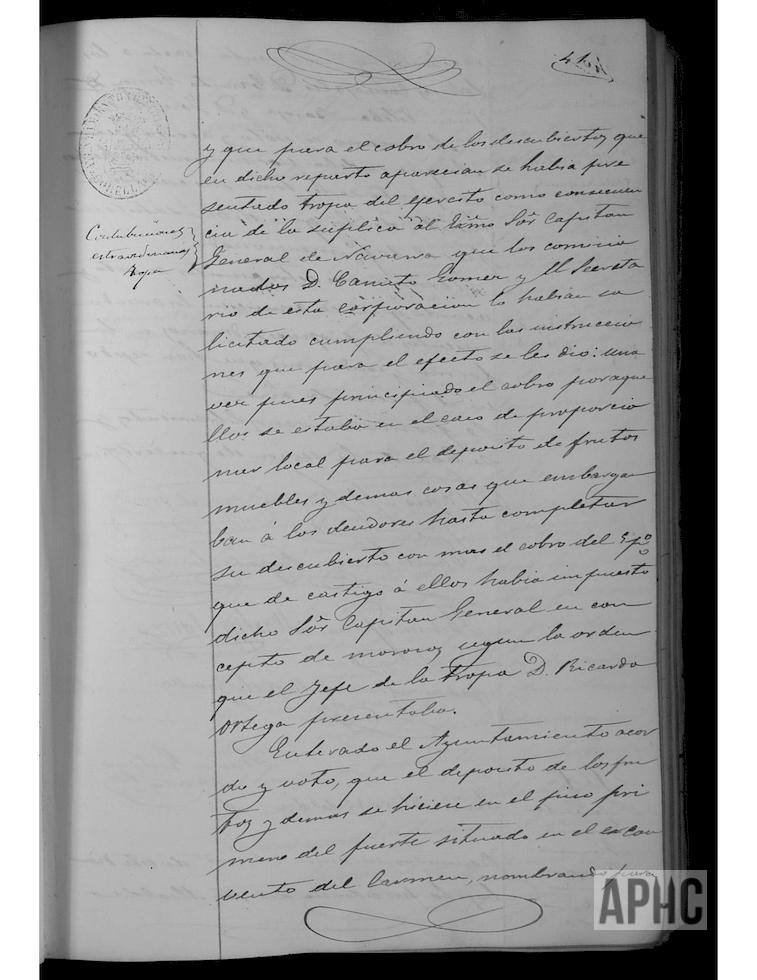 414
y que para el cobro de los descubiertos que
en dicho reparto aparecian se habia pre
sentado tropa del Ejercito como consecuen
cia de la suplica al Exmo Sör Capitan
Contribuciones
estraordinarias
tropa
General de Navarra que los comisio
nados D. Canuto Gomez y el Secreta
rio de esta corporacion lo habian so
licitado cumpliendo con las instruccio
nes que para el efecto se les dio: una
vez pues principiado el cobro por aque
llos se estaba en el caso de proporcio
nar local para el deposito de frutos
muebles y demas cosas que embarga
ban á los deudores hasta completar
su descubierto con mas el cobro del
que de castigo á ellos habia impuesto
dicho Sör Capitan General en con
cepto de morosos segun la orden
que el Jefe de la tropa D. Ricardo
Ortega presentaba.
Enterado el Ayuntamiento acor
do y voto, que el deposito de los fru
tos y demas se hiciese en el piso pri
mero del fuerte situado en el excon
vento del Carmen, nombrando para
APHC